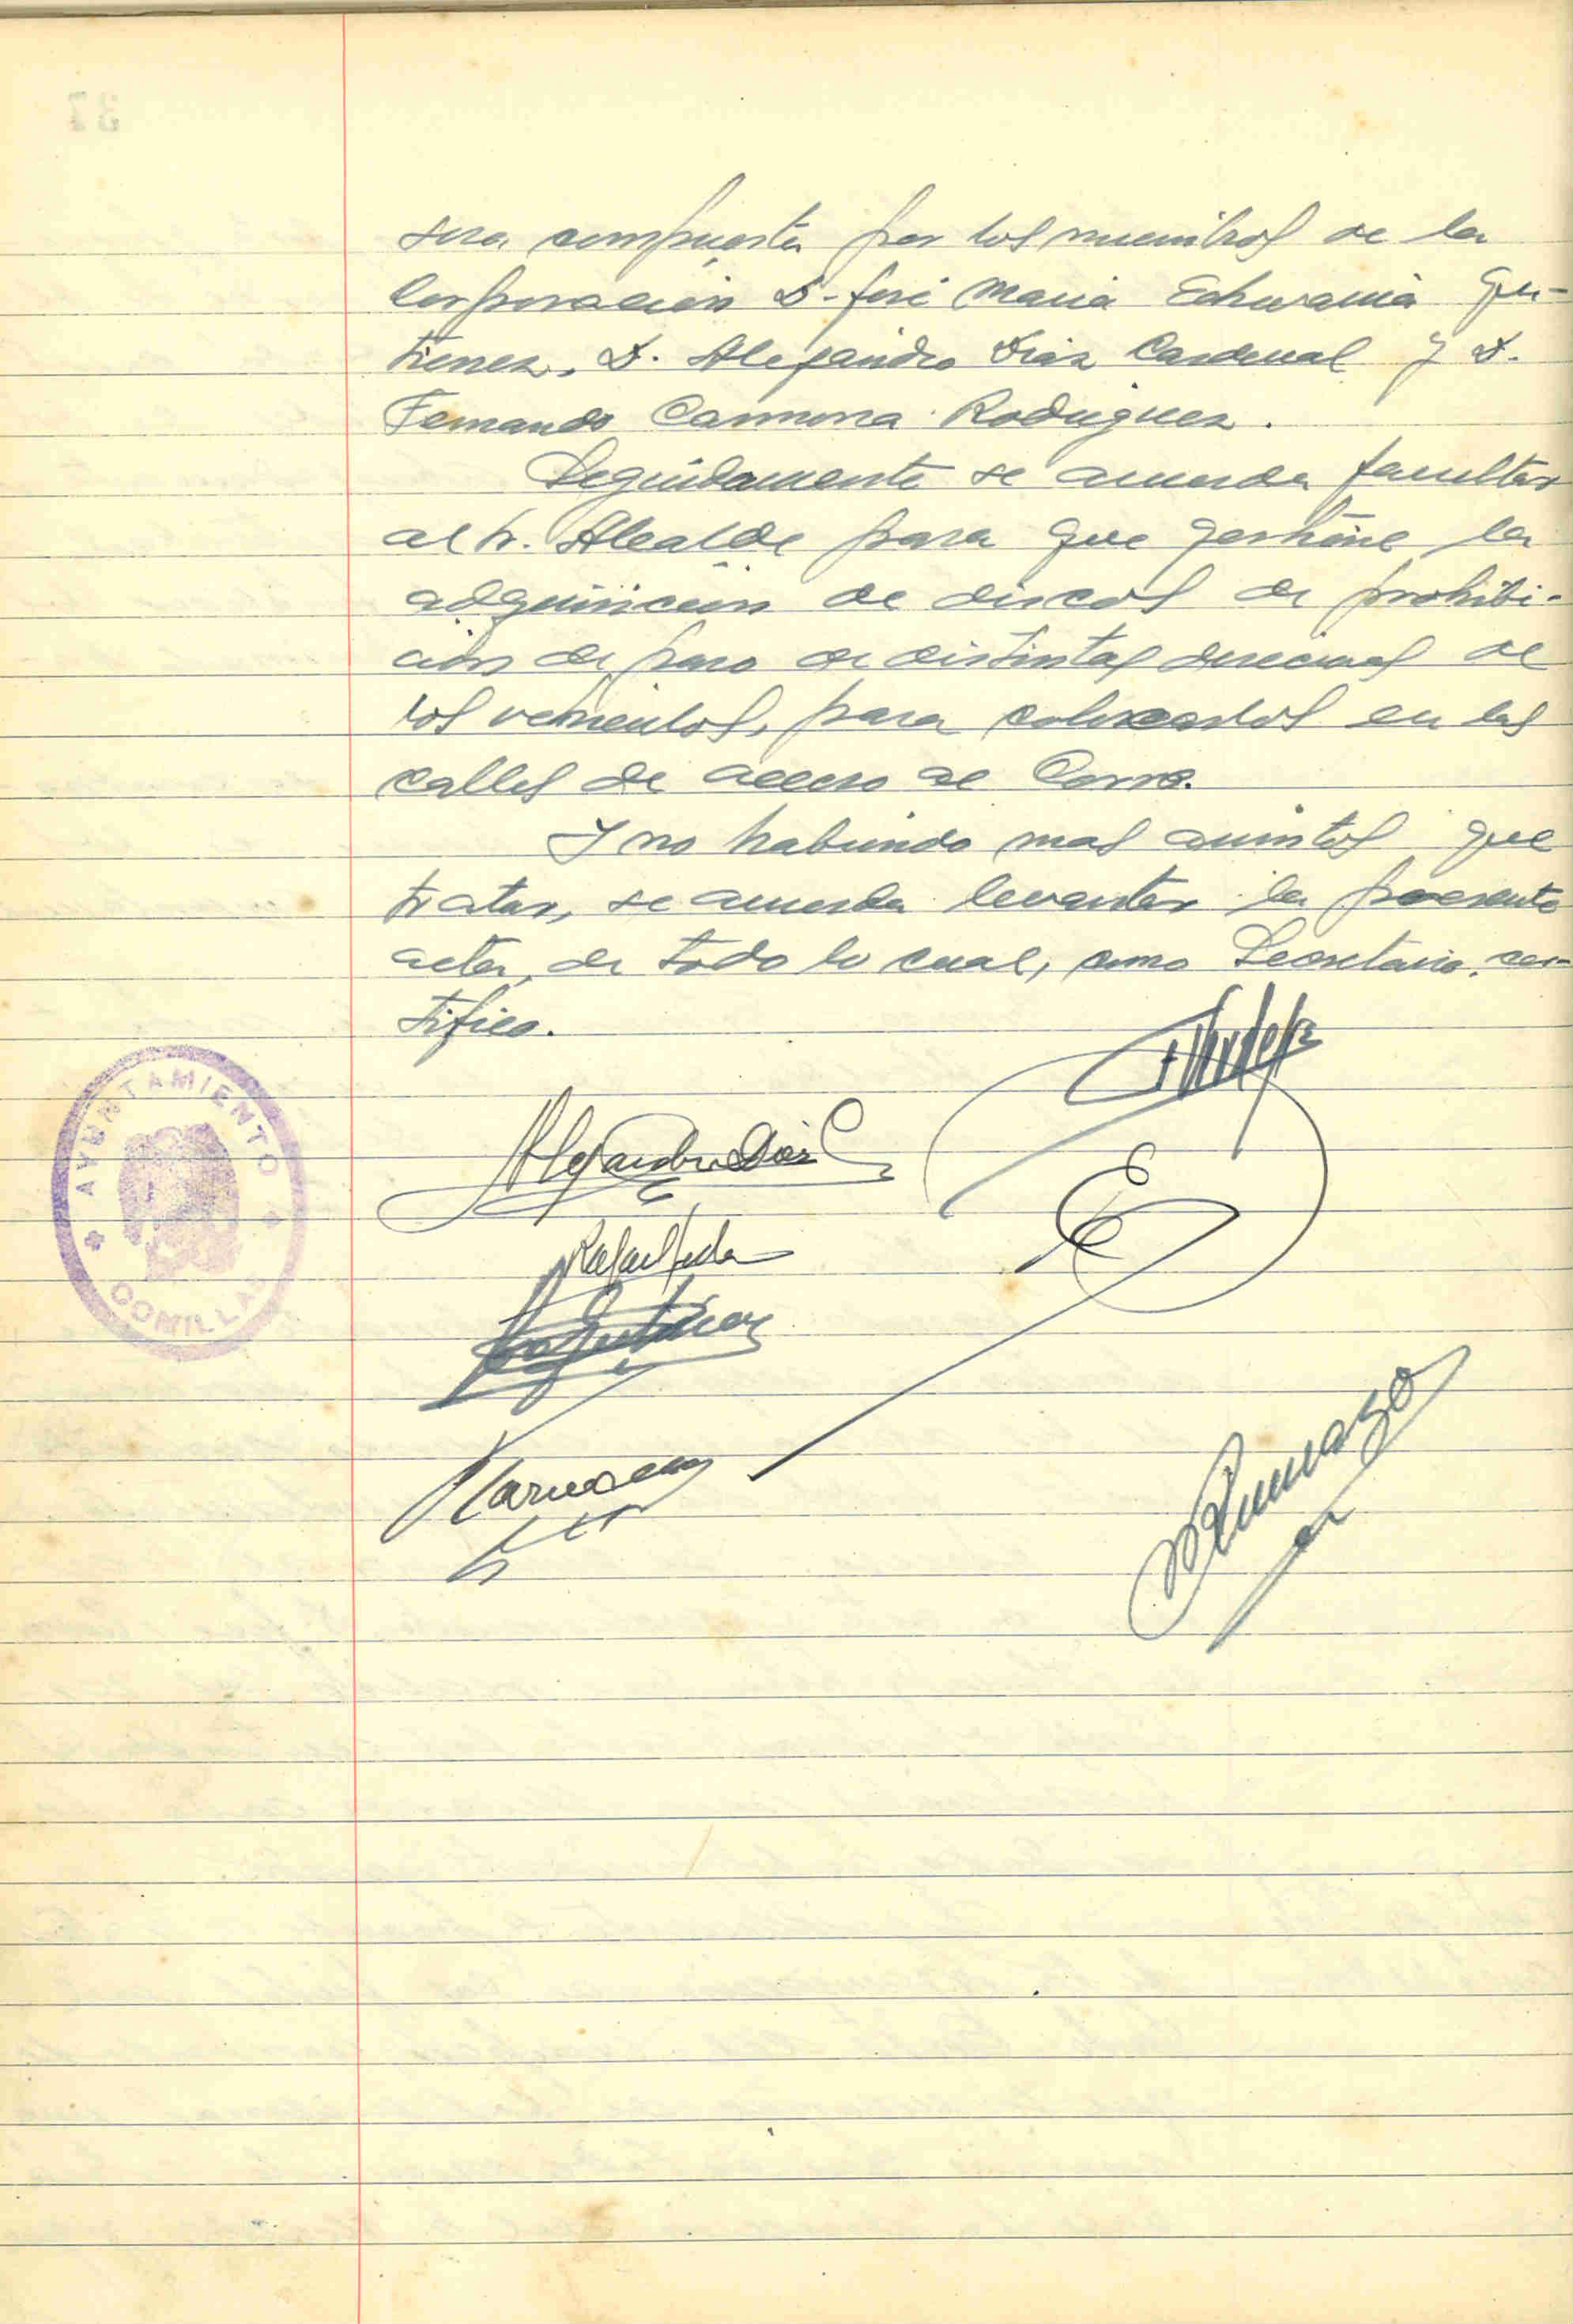 sera compuesta por los miembros de la
Corporación D. José Maria Echevarria Gu-
tierrez, D. Alejandro Diaz Cardenal y D.
Fernando Carmona Rodriguez.
Seguidamente se acuerda facultar
al Sr. Alcalde para que gestione la
adquisición de discos de prohibi-
ción de paso de distintas direcciones de
los vehiculos, para colocarlos en las
calles de acceso al Corro.
Y no habiendo mas asuntos que
tratar, se acuerda levantar la presente
acta, de todo lo cual, como Secretario, cer-
tifico.
Alejandro Diaz
Rafael
AYUNTAMIENTO
COMILLAS
37